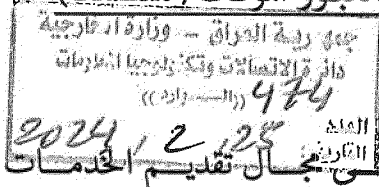 جمهورية العراق - وزارة الخارجية
دائرة الاتصالات وتكنولوجيا المعلومات
((الـــواردة))
العدد 474
التاريخ 2024 / 2 / 25
في مجال تقديم الخدمات